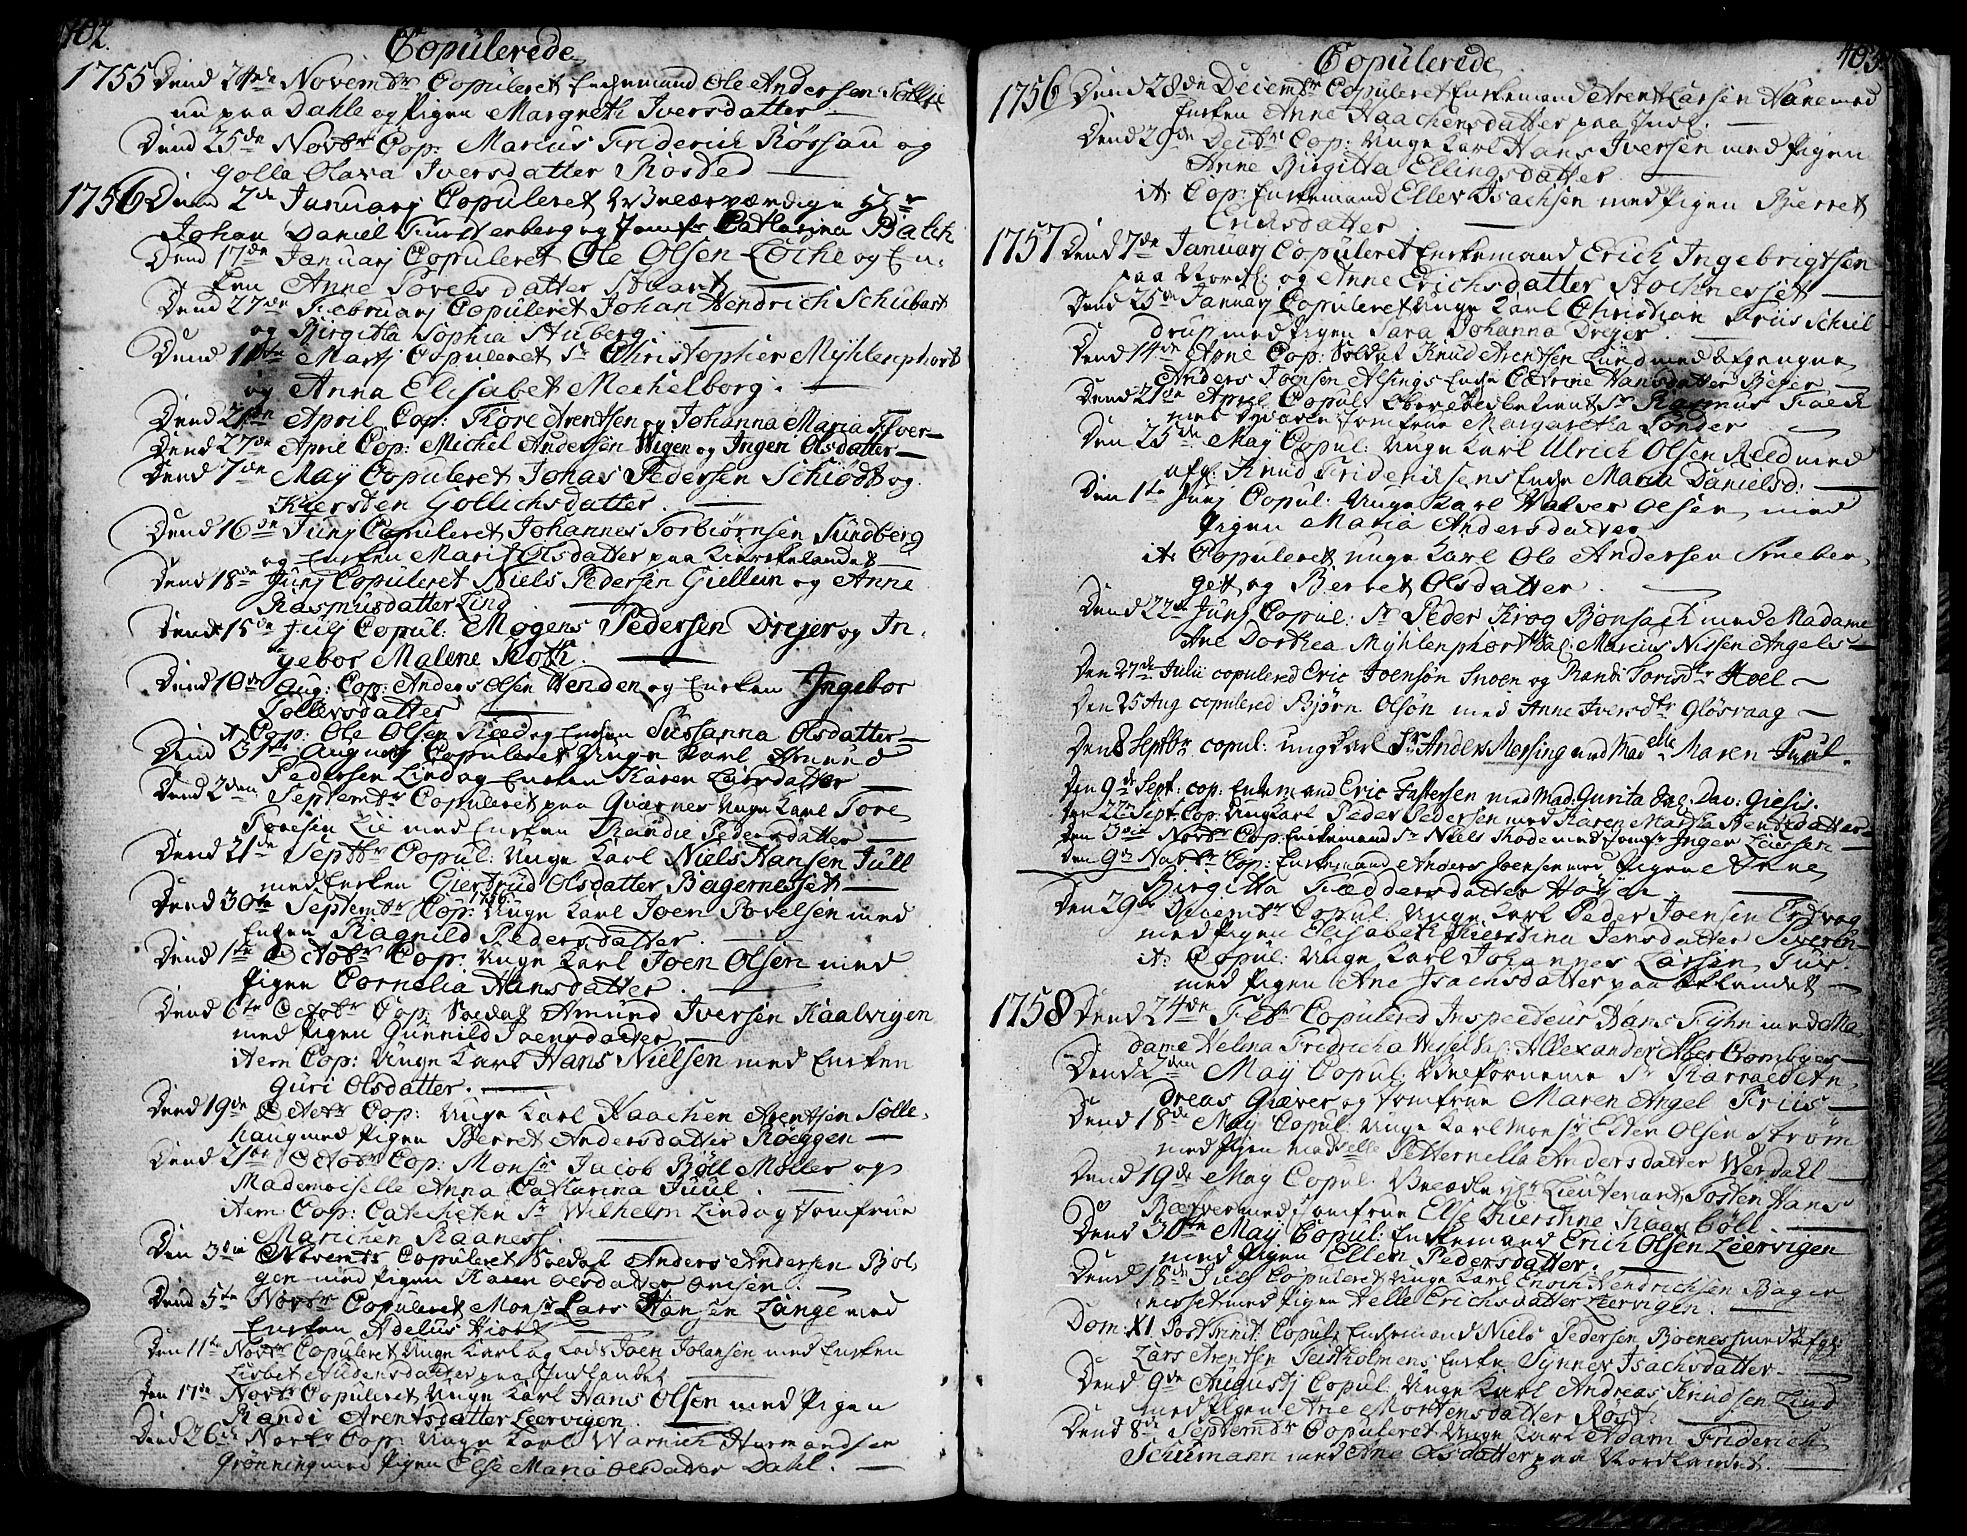 402.
Copulerede
1755 Dend 24de Novembr Copuleret Enkemand Ole Andersen Sollie
nu paa Dahle og Pigen Margreth Iversdatter
Dend 25de Novbr Cop: Marcus Friderich Røssau og
Golla Olava Iversdatter Rosted
1756 Dend 2de Januarj Copuleret Velærværdige Hr
Johan Daniel Furstenberg og Jomfr Catharina Balch
Dend 17de Januarj Copuleret Ole Olsen Løche og En-
ken Anne Povels datter Stuart
Dend 27de Februarj Copuleret Johan Hendrich Schubart
og Birgitta Sophia Stuberg.
Dend Martj Copuleret Sr Christopher Myhlenphort
og Anna Elisabet Mechelborg.
Dend 21de April Cop: Tore Arentsen og Johanna Maria
Dend 27de April Cop: Michel Andersen Wigen og Ingeri Olsdatter
Dend 7de May Copuleret Johas Pedersen Schiødt og
Kiersten Gollichsdatter.
Dend 16de Junj Copuleret Johannes Torbiørnsen Sundberg
og Enken Marit Olsdatter paa Kirkelandet
Dend 18de Junj Copuleret Niels Pedersen Giellun og Anne
Rasmusdatter Lind
Dend 15de Julj Copul: Mogens Pedersen Drejer og In-
gebor Malene Roth.
Dend 10de Aug: Cop: Anders Olsen Venden og Enken Ingebor
Tollersdatter
It Cop: Ole Olsen Reed og Enken Susanna Olsdatter
Dend 31te Augustj Copuleret Unge Karl Amund
Pedersen Lind og Enken Karen Larsdatter
Dend 2den Septembr Copuleret paa Qværnes Unge Karl Tore
Toresen Lie med Enken Randie Pedersdatter
Dend 21de Septbr Copul: Unge Karl Niels Hansen Jull
med Enken Giertrud Olsdatter Bagernesset
Dend 30te Septembr Cop: Unge Karl Joen Povelsen med
Enken Ragnild Pedersdatter.
Dend 1te Octobr Cop: Unge Karl Joen Olsen med
Pigen Cornelia Hansdatter.
Dend 6te Octobr Cop: Soldat Amund Iversen Kaalvigen
med Pigen Gunnild Joensdatter
Item Cop: Unge Karl Hans Nielsen med Enken
Guri Olsdatter.
Dend 19de Octobr Cop: Unge Karl Haachen Arentsen Solle-
haug med Pigen Berret Andersdatter Røeggen
Dend 21de Octobr Cop: Monsr Jacob Bøll Møller og
Mademoiselle Anna Catharina Juul.
Item Cop: Catecheten Sr Wilhelm Lind og Jomfrue
Marichen Kaaness.
Den 3die Novembr Copuleret Soldat Anders Andersen Bol-
gen med Pigen Karen Olsdatter
Dend 5te Novbr Copuleret Monsr Lars Hansen Lange med
Enken Adelus Hiort
Den 11te Novbr Copuleret Unge Karl og Joen Johansen med Enken
Lisbet Audensdatter paa Indlandet
Den 17de Novbr Copuleret Unge Karl Hans Olsen med Pigen
Randi Arentsdatter Leervigen.
Dend 26de Novbr Cop: Unge Karl Warnich Harmandsen
Grønning med Pigen Else Maria Olsdatter Dahl.
403.
Copulerede
1756 Dend 28de Decembr Copuleret Enkemand Arent Larsen Hane med
Enken Anne Haachensdatter paa Indl.
Dend 29de Decbr Cop: Unge Karl Hans Iversen med Pigen
Anne Birgitta Ellingsdatter
it: Cop: Enkemand Ellev Isachsen med Pigen Bierret
Erichsdatter
1757 Dend 7de Januarj Copuleret Enkemand Erich Ingebrigtsen
paa Nordl: og Anne Erichsdatter Stochnesset
Dend 25de Januarj Copuleret Unge Karl Christian Friis Schiel
drup med Pigen Sara Johanna Drejer
Dend 14de Cop: Soldat Knud Arentsen Lund med afgangne
Anders Joensen Alsings Enke Catrine Hansdatter Bejer
Dend 21de April Copul: Sr Rasmus Falch
met Jomfrue Margaretha Sønder
Den 25de May Copul: Unge Karl Ulrich Olsen Reed med
afg: Knud Fridrichsens Enke Maria Danielsd:
Den 1te Junj Copul: Unge Karl Halver Olsen med
Pigen Maria Andersdatter
it: Copuleret Unge Karl Ole Andersen Smeber-
get og Berret Olsdatter.
Dend 22de Junj Copul: Sr Peder Krog Bonsach med Madame
Ane Dorthea Myhlenphort Sal: Marcus Nissen Angels
Den 27de Julii copulered Eric Joensøn Inoen og Randi Torisdtr Hoel
Den 25 Aug copulered Bjørn Olsøn med Anne Iversdtr Gløsvaag
Den 8 Septbr copul: ungkarl Sr Anders Morsing med Madelle Maren Juul.
Den 9de Sept: cop: Enkemand Eric Fastersen med Mad: Gurita Sal. Dav: Giesis.
Den 22de Sept: Cop: Ungkarl Peder Pedersen med Karen Martha Bendixdatter
Den 3die Novbr Cop: Enkemand Sr Niels Mode med Jomfr Inger Lassen
Den 9de Novbr Cop: Enkemand Anders Joensen med Pigen Anne
Birgitta Fæddersdatter Høyer
Den 29de Decembr Copul: Unge Karl Peder Joensen Ertvog
med Pigen Elisabeth Kierstina Jensdatter Severin
it: Copul: Unge Karl Johannes Larsen Tuis.
med Pigen Ane Isachsdatter paa Inlandet
1758 Dend 24de Febr Copulered Inspecteur Hans Fyhn med Ma-
dame Helena Fridricha Wesel Sal: Allexander
Dend 2den May Copul: Velfornemme Sr Karraed An-
dreas Giæver og Jomfrue Maren Angel Friis
Dend 18de May Copul: Unge Karl Monsr Ellen Olsen Strøm
med Pigen Madelle Petternella Andersdatter Werdahl
Dend 19de May Copul: Velædle Hr Lieutenant Tosten Hans
Ræfver med Jomfrue Else Kierstine Kaas Bøll.
Dend 30te May Copul: Enkemand Erich Olsen Leervigen
med Pigen Ellen Pedersdatter.
Dend 18de Julj Copuleret Unge Karl Enoch Hendrichsen Bager
nesset med Pigen Helle Erichsdatter Leervigen.
Dom: XI Post Trinit: Copul: Enkemand Niels Pedersen Boeness med Afgl:
Lars Arentsen Teistholmens Enke Synnev Isachsdatter
Dend 9de Augustj Copul: Unge Karl Andreas Knudsen Lind
med Pigen Ane Mortensdatter Røyt.
Dend 8de Septembr Copuleret Unge Karl Adam Friderich
Schumann med Ane Olsdatter paa Nordlandet.